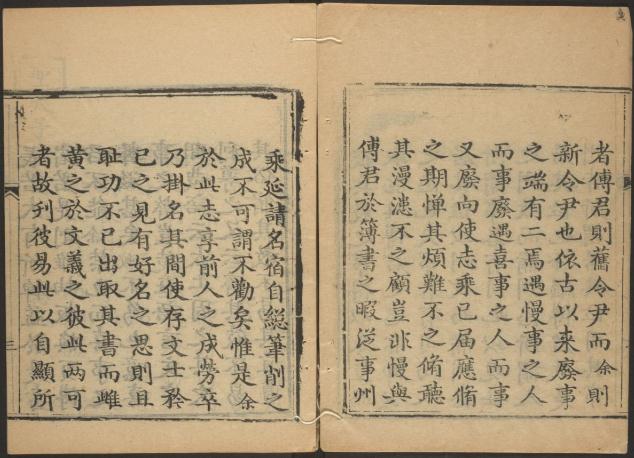 者傅君則舊令尹而余則
新令尹也依古以来廢事
之端有二焉遇慢事之人
而事廢遇喜事之人而事
又廢向使志乗已届應脩
之期憚其煩難不之脩聽
其漫漶不之顧豈非慢與
傅君於簿書之暇泛事州
乘延請名宿自総筆削之
成不可謂不勸矣惟是余
於此志享前人之成勞卒
乃掛名其間使存文士矜
已之見有好名之思則且
耻功不已出取其書而雌
黄之於文義之彼此两可
者故刋彼易此以自顯所
三